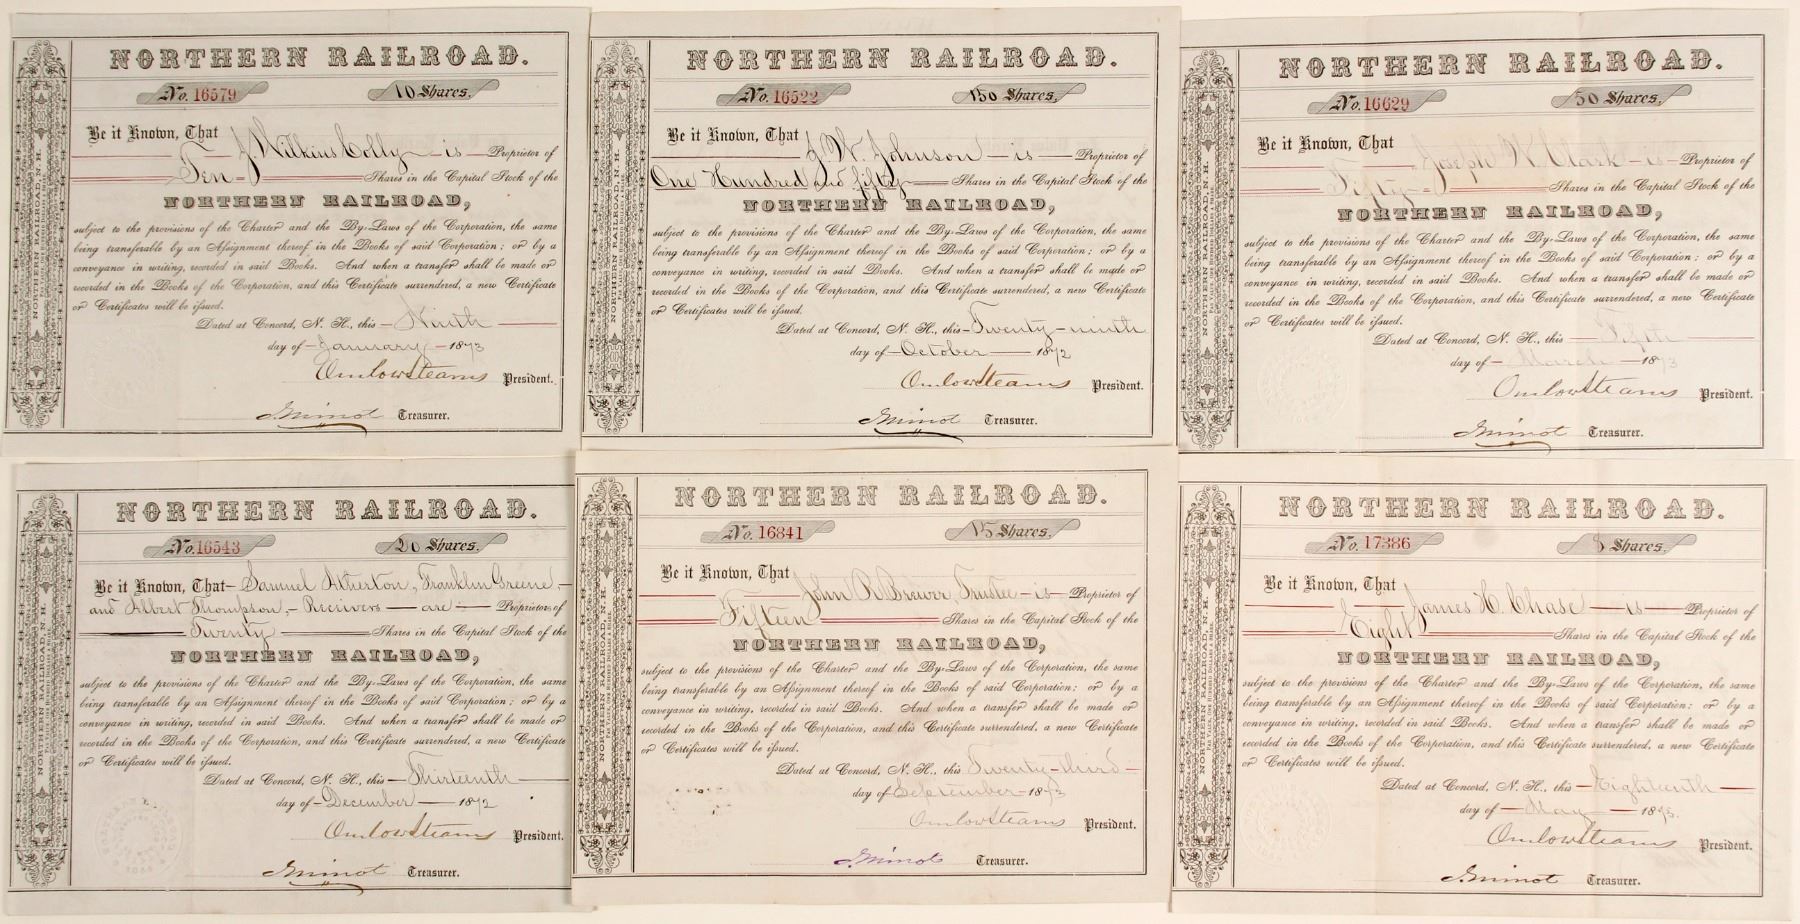 NORTHERN RAILROAD.
No. 16579 10 Shares.
Be it Known, That J. Wilkins Colly is Proprietor of
Ten Shares in the Capital Stock of the
NORTHERN RAILROAD,
subject to the provisions of the Charter and the By-Laws of the Corporation, the same
being transferable by an Assignment thereof in the Books of said Corporation; or by a
conveyance in writing, recorded in said Books. And when a transfer shall be made or
recorded in the Books of the Corporation, and this Certificate surrendered, a new Certificate
or Certificates will be issued.
Dated at Concord, N. H., this Ninth
day of January 1873
Onslow Stearns President.
J. Minot Treasurer.
NORTHERN RAILROAD, N. H.
NORTHERN RAILROAD.
No. 16522 150 Shares.
Be it Known, That J. W. Johnson is Proprietor of
One Hundred and fifty Shares in the Capital Stock of the
NORTHERN RAILROAD,
subject to the provisions of the Charter and the By-Laws of the Corporation, the same
being transferable by an Assignment thereof in the Books of said Corporation; or by a
conveyance in writing, recorded in said Books. And when a transfer shall be made or
recorded in the Books of the Corporation, and this Certificate surrendered, a new Certificate
or Certificates will be issued.
Dated at Concord, N. H., this Twenty-ninth
day of October 1872
Onslow Stearns President.
J. Minot Treasurer.
NORTHERN RAILROAD, N. H.
NORTHERN RAILROAD.
No. 16629 50 Shares.
Be it Known, That Joseph W. Clark is Proprietor of
Fifty Shares in the Capital Stock of the
NORTHERN RAILROAD,
subject to the provisions of the Charter and the By-Laws of the Corporation, the same
being transferable by an Assignment thereof in the Books of said Corporation; or by a
conveyance in writing, recorded in said Books. And when a transfer shall be made or
recorded in the Books of the Corporation, and this Certificate surrendered, a new Certificate
or Certificates will be issued.
Dated at Concord, N. H., this Fifth
day of March 1873
Onslow Stearns President.
J. Minot Treasurer.
NORTHERN RAILROAD, N. H.
NORTHERN RAILROAD.
No. 16543 20 Shares.
Be it Known, That Samuel Atherton, Franklin Greene
and Albert Thompson, Receivers are Proprietors of
Twenty Shares in the Capital Stock of the
NORTHERN RAILROAD,
subject to the provisions of the Charter and the By-Laws of the Corporation, the same
being transferable by an Assignment thereof in the Books of said Corporation; or by a
conveyance in writing, recorded in said Books. And when a transfer shall be made or
recorded in the Books of the Corporation, and this Certificate surrendered, a new Certificate
or Certificates will be issued.
Dated at Concord, N. H., this Thirteenth
day of December 1872
Onslow Stearns President.
J. Minot Treasurer.
NORTHERN RAILROAD, N. H.
NORTHERN RAILROAD.
No. 16841 15 Shares.
Be it Known, That John R. Brewer, Trustee is Proprietor of
Fifteen Shares in the Capital Stock of the
NORTHERN RAILROAD,
subject to the provisions of the Charter and the By-Laws of the Corporation, the same
being transferable by an Assignment thereof in the Books of said Corporation; or by a
conveyance in writing, recorded in said Books. And when a transfer shall be made or
recorded in the Books of the Corporation, and this Certificate surrendered, a new Certificate
or Certificates will be issued.
Dated at Concord, N. H., this Twenty-third
day of September 1873
Onslow Stearns President.
J. Minot Treasurer.
NORTHERN RAILROAD, N. H.
NORTHERN RAILROAD.
No. 17386 8 Shares.
Be it Known, That James H. Chase is Proprietor of
Eight Shares in the Capital Stock of the
NORTHERN RAILROAD,
subject to the provisions of the Charter and the By-Laws of the Corporation, the same
being transferable by an Assignment thereof in the Books of said Corporation; or by a
conveyance in writing, recorded in said Books. And when a transfer shall be made or
recorded in the Books of the Corporation, and this Certificate surrendered, a new Certificate
or Certificates will be issued.
Dated at Concord, N. H., this Eighteenth
day of May 1875.
Onslow Stearns President.
J. Minot Treasurer.
NORTHERN RAILROAD, N. H.